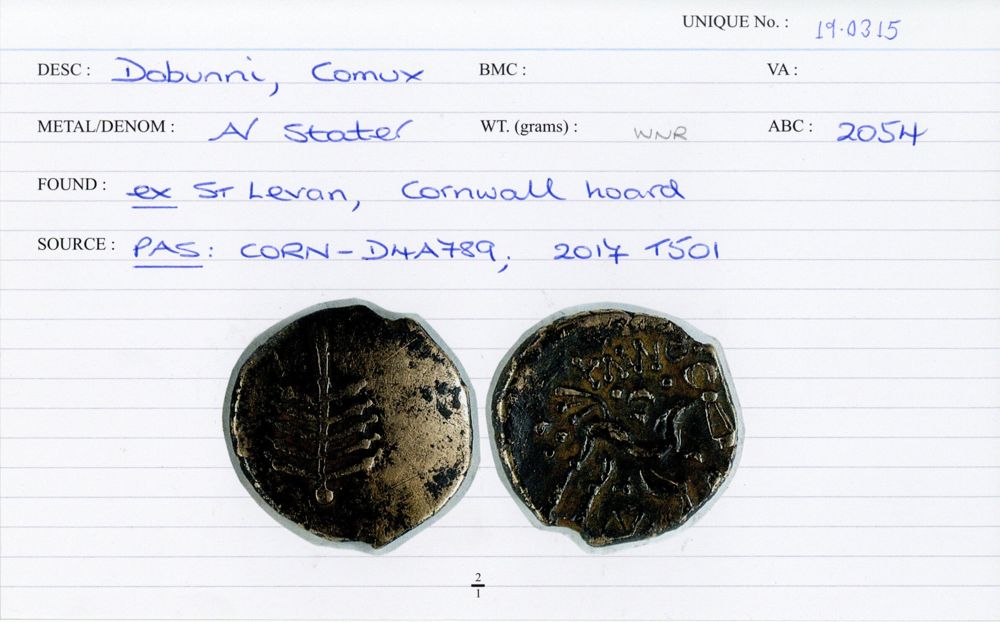 UNIQUE No. : 19.0315
DESC : Dobunni, Comux BMC : VA :
METAL/DENOM : AV Stater WT. (grams) : WNR ABC : 2054
FOUND : ex St Levan, Cornwall hoard
SOURCE : PAS: CORN-D4A789, 2017 T501
2
1